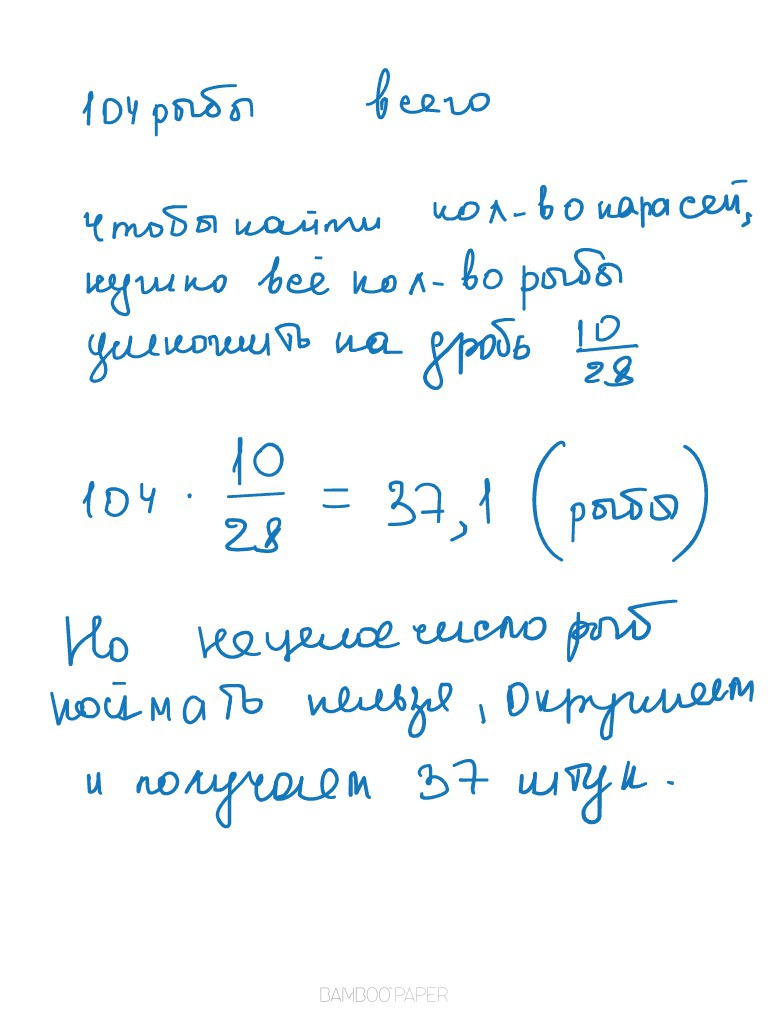 104 рыбы всего
чтобы найти кол-во карасей,
нужно всё кол-во рыбы
умножить на дробь 10/28
104 · 10/28 = 37,1 (рыбы)
Но нецелое число рыб
поймать нельзя, округляем
и получаем 37 штук.
BAMBOO PAPER